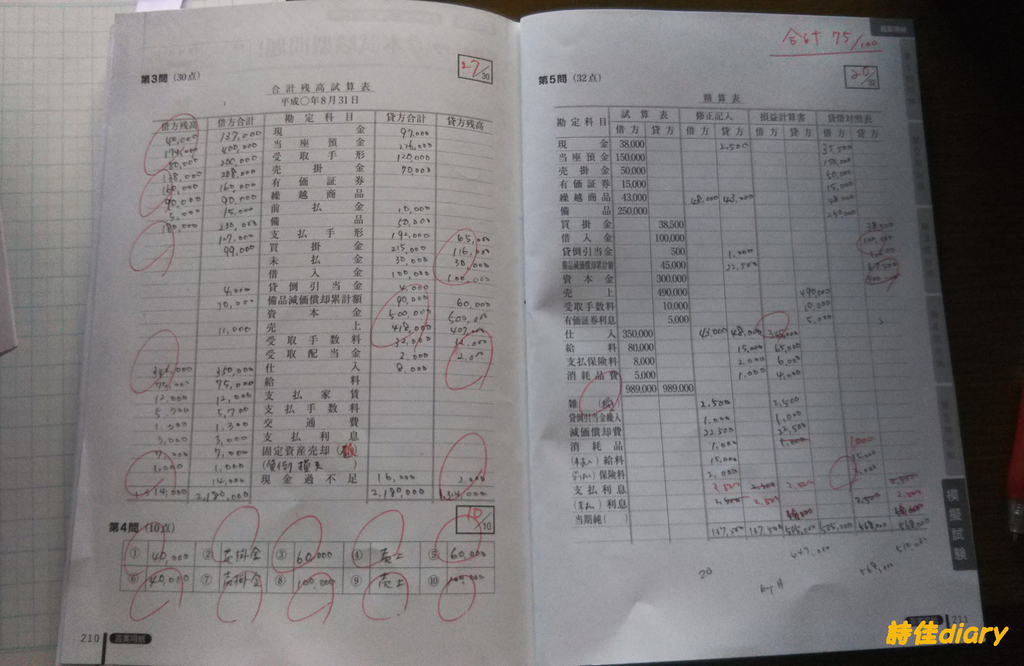 第3問 (30点)
27/30
合計残高試算表
平成〇年8月31日
借方残高 借方合計 勘定科目 貸方合計 貸方残高
40,000 137,000 現金 97,000
174,000 400,000 当座預金 226,000
80,000 200,000 受取手形 120,000
138,000 208,000 売掛金 70,000
160,000 160,000 有価証券
90,000 90,000 繰越商品
5,000 15,000 前払金 10,000
180,000 230,000 備品 50,000
107,000 支払手形 192,000 65,000
99,000 買掛金 215,000 116,000
未払金 30,000 30,000
借入金 100,000 100,000
4,000 貸倒引当金 4,000
30,000 備品減価償却累計額 90,000 60,000
資本金 500,000 500,000
11,000 売上 418,000 407,000
受取手数料 32,000
受取配当金 2,000 2,000
350,000 仕入 8,000
75,000 75,000 給料
12,000 12,000 支払家賃
5,700 5,700 支払手数料
1,300 1,300 交通費
3,000 3,000 支払利息
7,000 7,000 固定資産売却
1,000 1,000 (貸倒損失)
14,000 現金過不足 16,000 2,000
2,180,000 2,180,000
第4問 (10点)
10/10
① 40,000 ② 売掛金 ③ 60,000 ④ 売上 ⑤ 60,000
⑥ 40,000 ⑦ 売掛金 ⑧ 100,000 ⑨ 売上 ⑩ 100,000
210 答案用紙
合計 75/100
第5問 (32点)
精算表
勘定科目 試算表 修正記入 損益計算書 貸借対照表
借方 貸方 借方 貸方 借方 貸方 借方 貸方
現金 38,000 2,500 35,500
当座預金 150,000 150,000
売掛金 50,000 50,000
有価証券 15,000 15,000
繰越商品 43,000 48,000 43,000 48,000
備品 250,000 250,000
買掛金 38,500 38,500
借入金 100,000 100,000
貸倒引当金 500 1,000
備品減価償却累計額 45,000 22,500 67,500
資本金 300,000
売上 490,000 490,000
受取手数料 10,000 10,000
有価証券利息 5,000 5,000
仕入 350,000 43,000 48,000
給料 80,000 15,000 65,000
支払保険料 8,000 2,000 6,000
消耗品費 5,000 1,000 4,000
989,000 989,000
雑(損) 2,500 2,500
貸倒引当金繰入 1,000 1,000
減価償却費 22,500 22,500
消耗品 1,000 1,000
給料 15,000 15,000
保険料 2,000 2,000
支払利息 2,500 2,500 2,500
利息 2,500 2,500 2,500 2,500
当期純( )
137,500 137,500 505,000 505,000 568,000 568,000
20
211
模擬試験
時佳diary